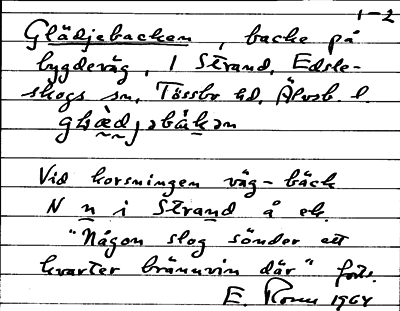 1-2
Glädjebacken, backe på
bygdeväg, 1 Strand, Edsle-
skogs sn, Tössbo hd, Älvsb. l.
Vid korsningen väg-bäck
N n i Strand å ek.
"Någon slog sönder ett
kvarter brännvin där"
E. 1964